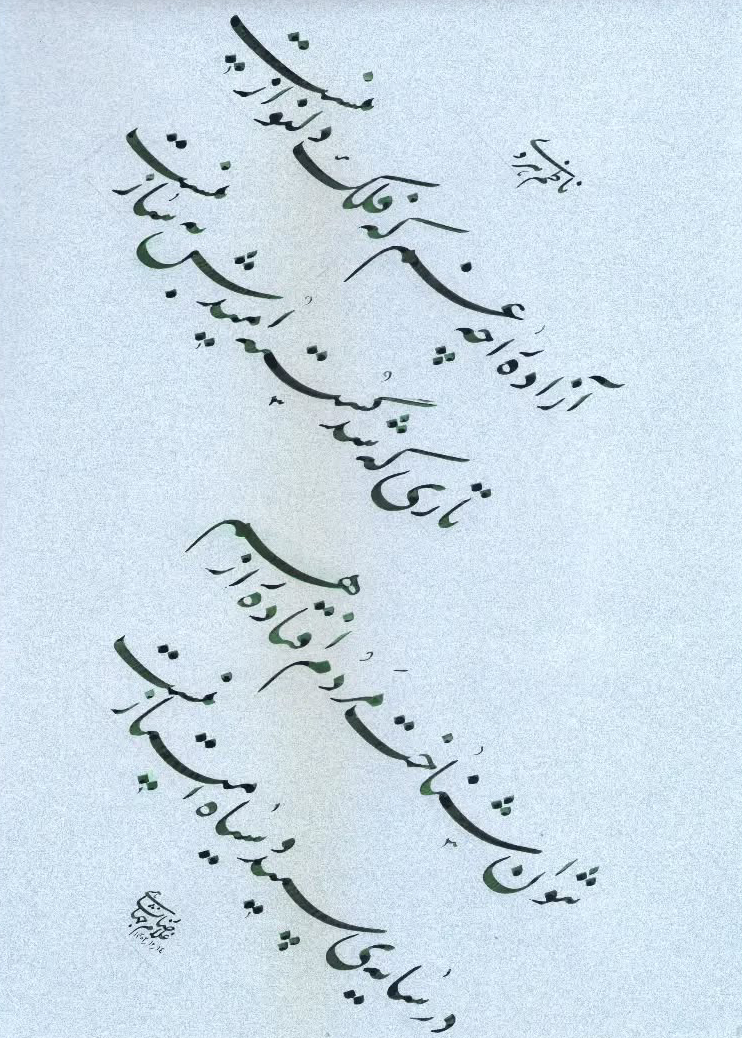 ناظم هروی
آزاده را چه غم که فلک دلنواز نیست
تاری که شد گسسته امیدش به ساز نیست
نتوان شناخت مردم افتاده را ز هم
در سایه‌ی سپید و سیاه امتیاز نیست